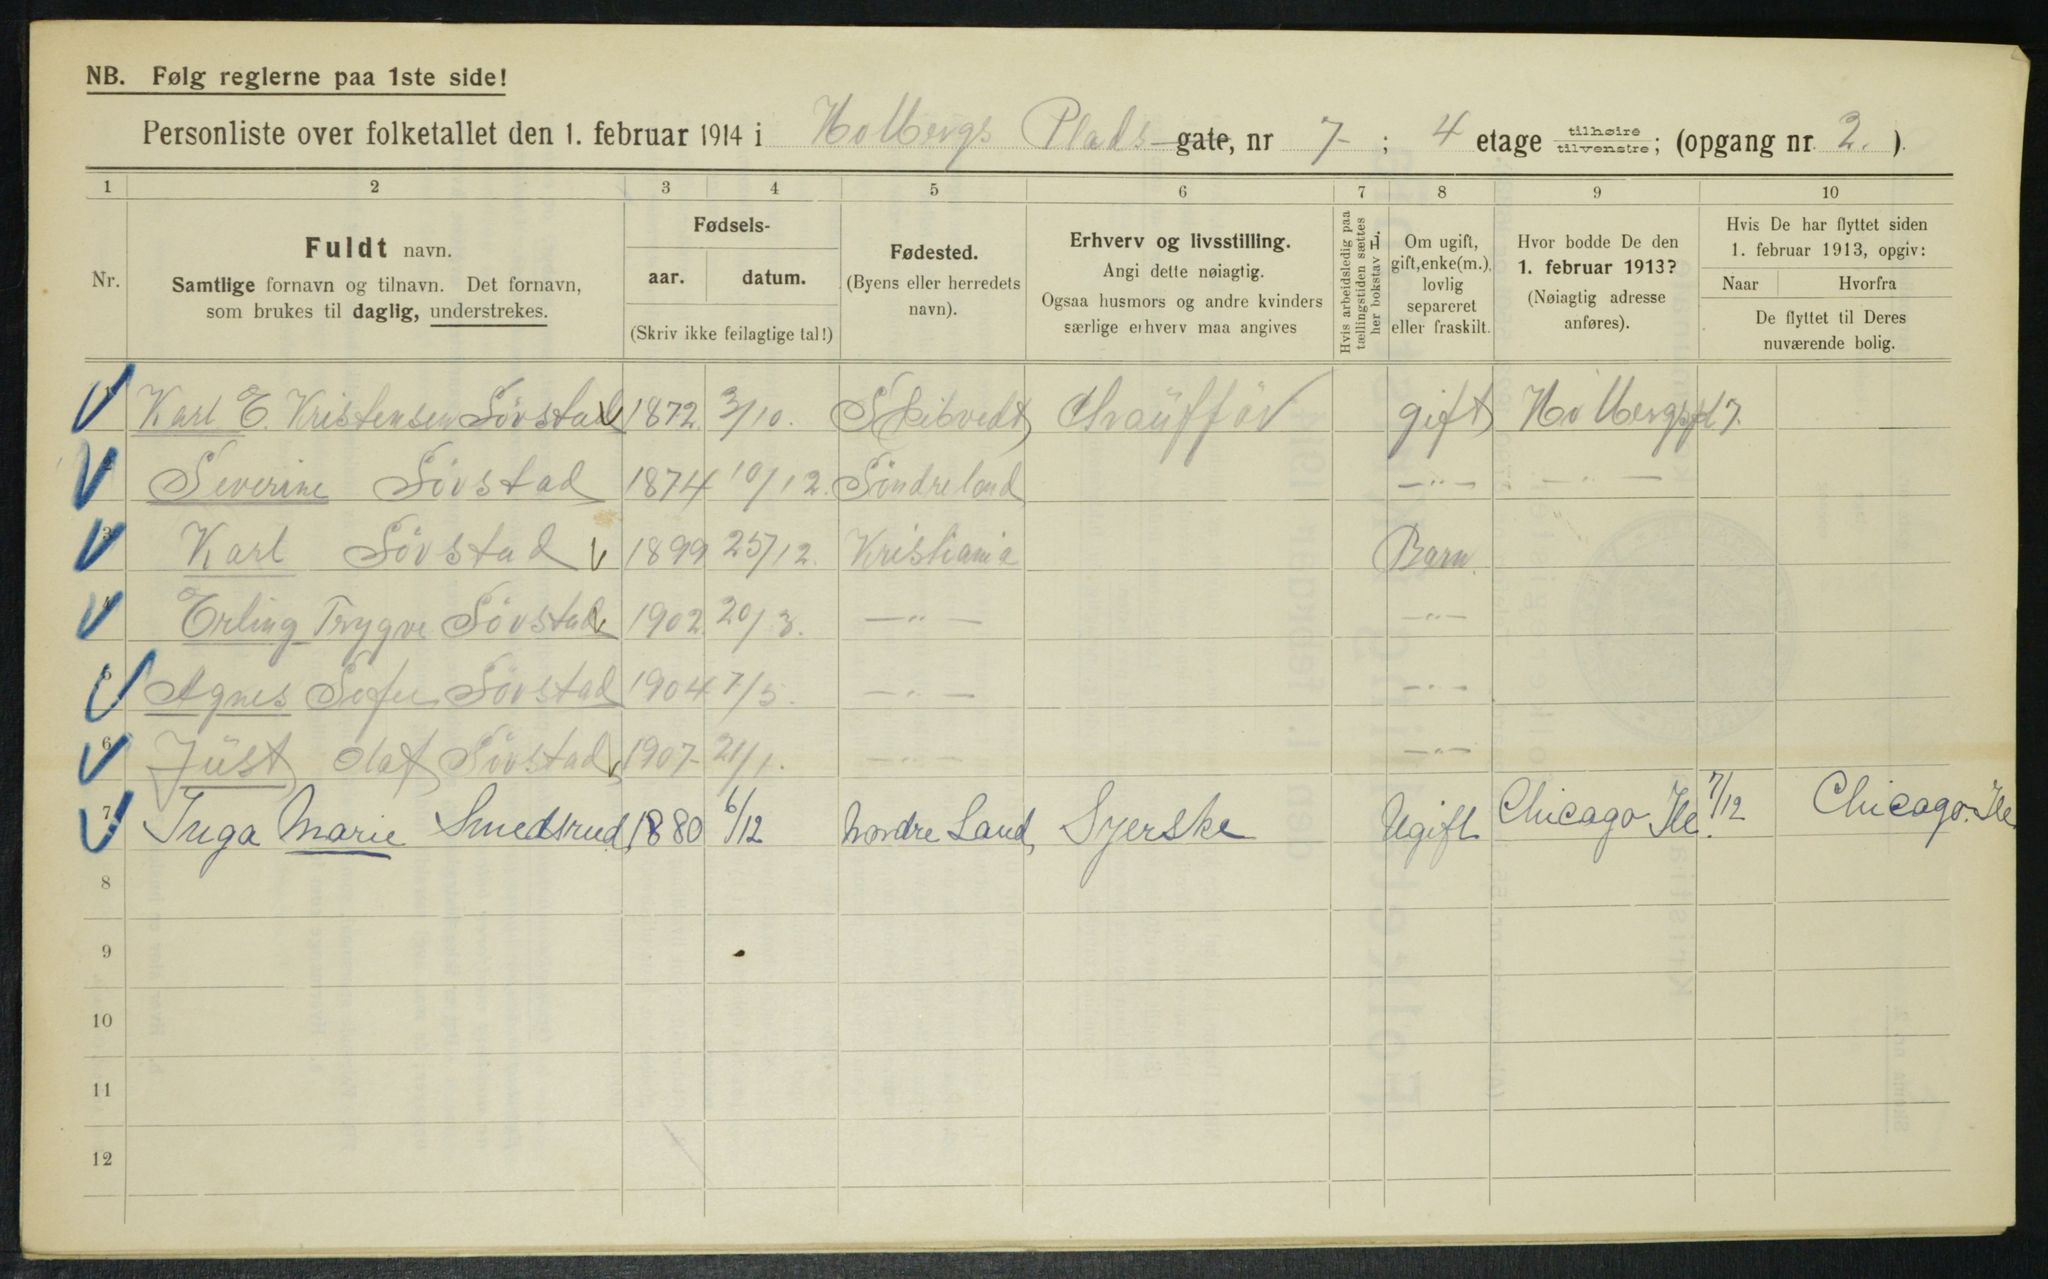 NB. Følg reglerne paa 1ste side!
Personliste over folketallet den 1. februar 1914 i Holbergs Plads gate, nr 7 ; 4 etage tilhøire tilvenstre; (opgang nr 2. ).
1 2 3 4 5 6 7 8 9 10
Nr.
Fuldt navn.
Samtlige fornavn og tilnavn. Det fornavn,
som brukes til daglig, understrekes.
Fødsels-
aar. datum.
(Skriv ikke feilagtige tal!)
Fødested.
(Byens eller herredets
navn).
Erhverv og livsstilling.
Angi dette nøiagtig.
Ogsaa husmors og andre kvinders
særlige erhverv maa angives
Hvis arbeidsledig paa
tællingstiden sættes
her bokstav L.
Om ugift,
gift, enke(m.),
lovlig
separeret
eller fraskilt.
Hvor bodde De den
1. februar 1913?
(Nøiagtig adresse
anføres).
Hvis De har flyttet siden
1. februar 1913, opgiv:
Naar Hvorfra
De flyttet til Deres
nuværende bolig.
1 Karl E. Kristensen Sövstad 1872. 3/10. Skibvedt Chaufför gift Holbergspl 7.
2 Severine Sövstad 1874 10/12. Söndreland —"— —"—
3 Karl Sövstad 1899 25/12. Kristiania Barn.
4 Erling Trygve Sövstad 1902. 20/3. —"— —"—
5 Agnes Sofie Sövstad 1904 7/5. —"— —"—
6 Just Olaf Sövstad 1907- 21/1. —"— —"—
7 Inga Marie Smedsrud 1880 6/12 Nordre Land, Syerske Ugift Chicago Ile. 7/12 Chicago. Ile
8
9
10
11
12